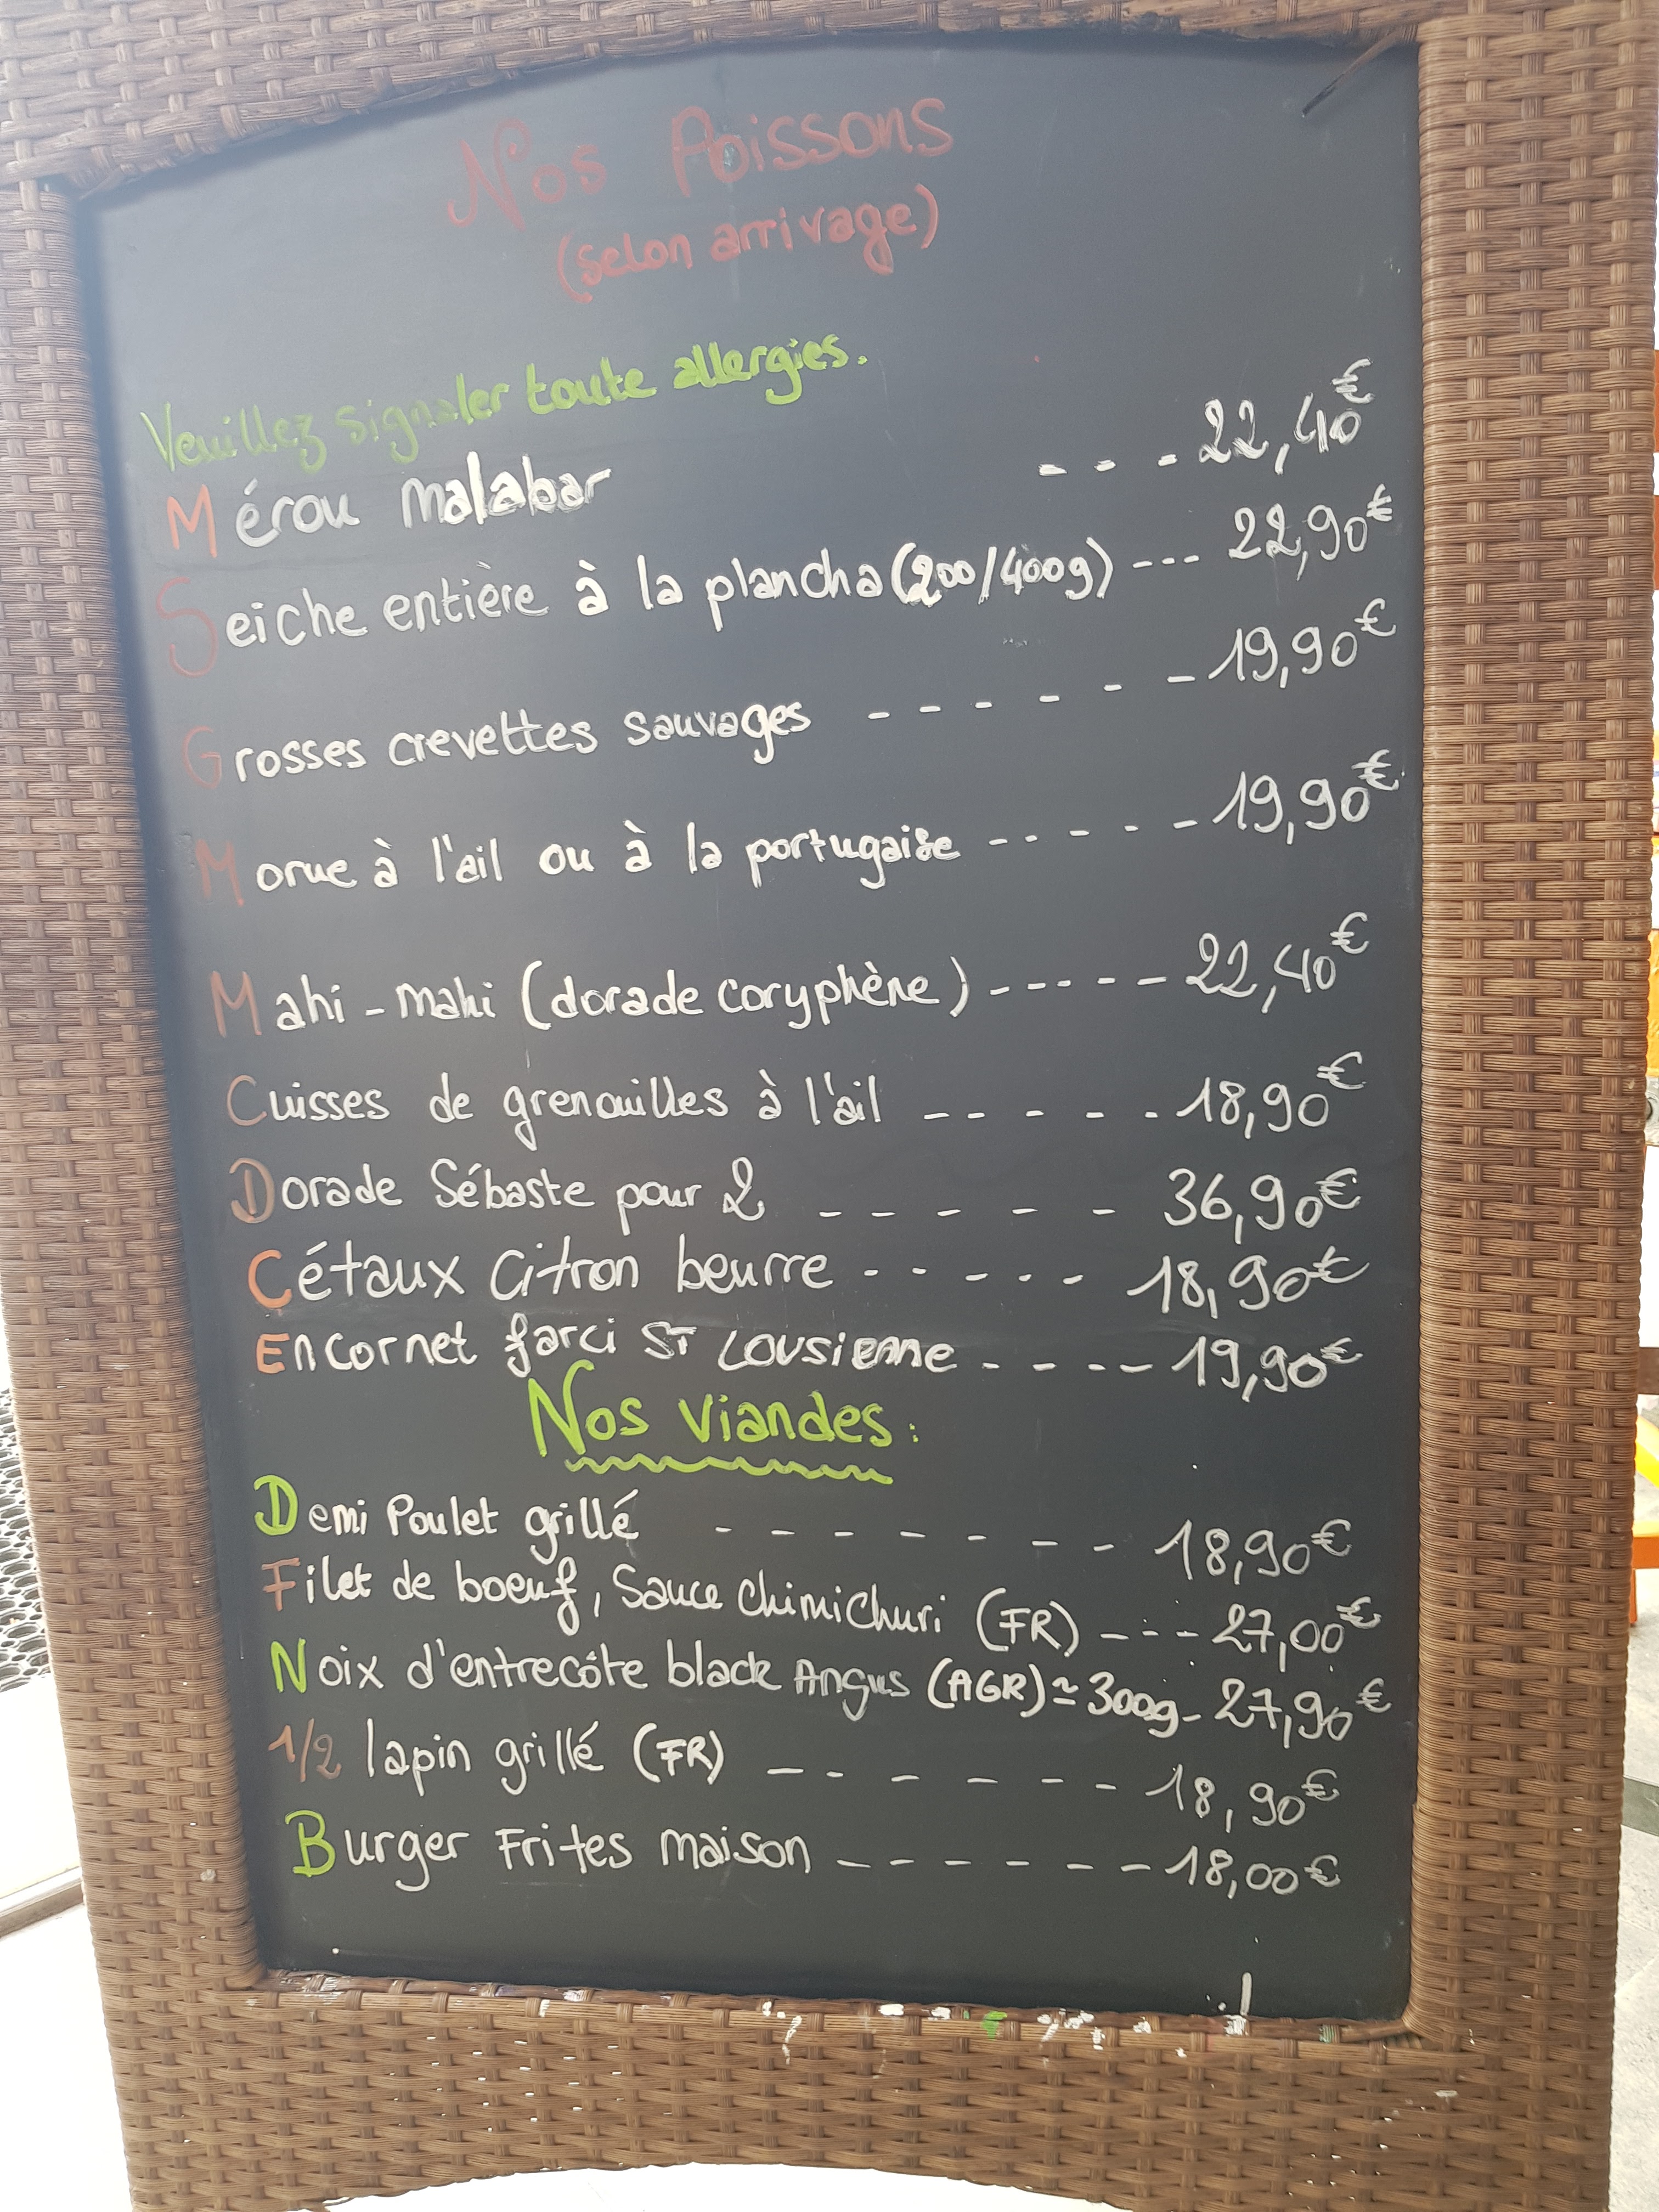 Nos Poissons
(selon arrivage)
Veuillez signaler toute allergies.
Mérou Malabar - - - 22,40€
Seiche entière à la plancha (200/400g) --- 22,90€
Grosses crevettes sauvages - - - - - - 19,90€
Morue à l'ail ou à la portugaise - - - - - 19,90€
Mahi-mahi (dorade coryphène) - - - - - 22,40€
Cuisses de grenouilles à l'ail - - - - - 18,90€
Dorade Sébaste pour 2 - - - - - 36,90€
Cétaux citron beurre - - - - - 18,90€
Encornet farci ST Lousienne - - - - 19,90€
Nos viandes :
Demi Poulet grillé - - - - - - - 18,90€
Filet de boeuf, Sauce chimichuri (FR) - - - - 27,00€
Noix d'entrecôte black Angus (AGR) ≃ 300g - 27,90€
1/2 lapin grillé (FR) - - - - - - - 18,90€
Burger Frites maison - - - - - - 18,00€